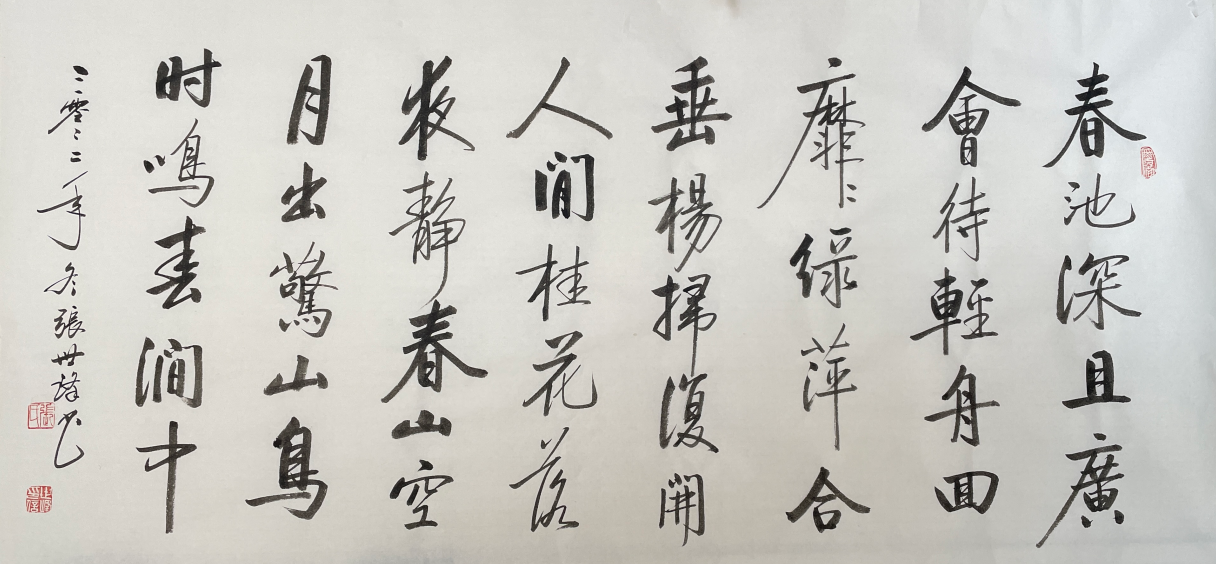 春池深且廣
會待輕舟回
靡〻綠萍合
垂楊掃復開
人閒桂花落
夜静春山空
月出驚山鳥
时鳴春澗中
二零二二年冬張世书